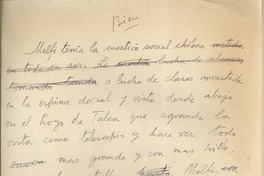 Bien
Melfi tenía la cuestión social chilena metida
en todo su ser. La cuestión lucha de clases
tomando tomada o lucha de clases incrustada
en la espina dorsal y vista desde abajo
en el Hoyo de Talca que agranda la
vista como telescopio y hace ver todo
mas grande y con mas brillo,
Melfi era